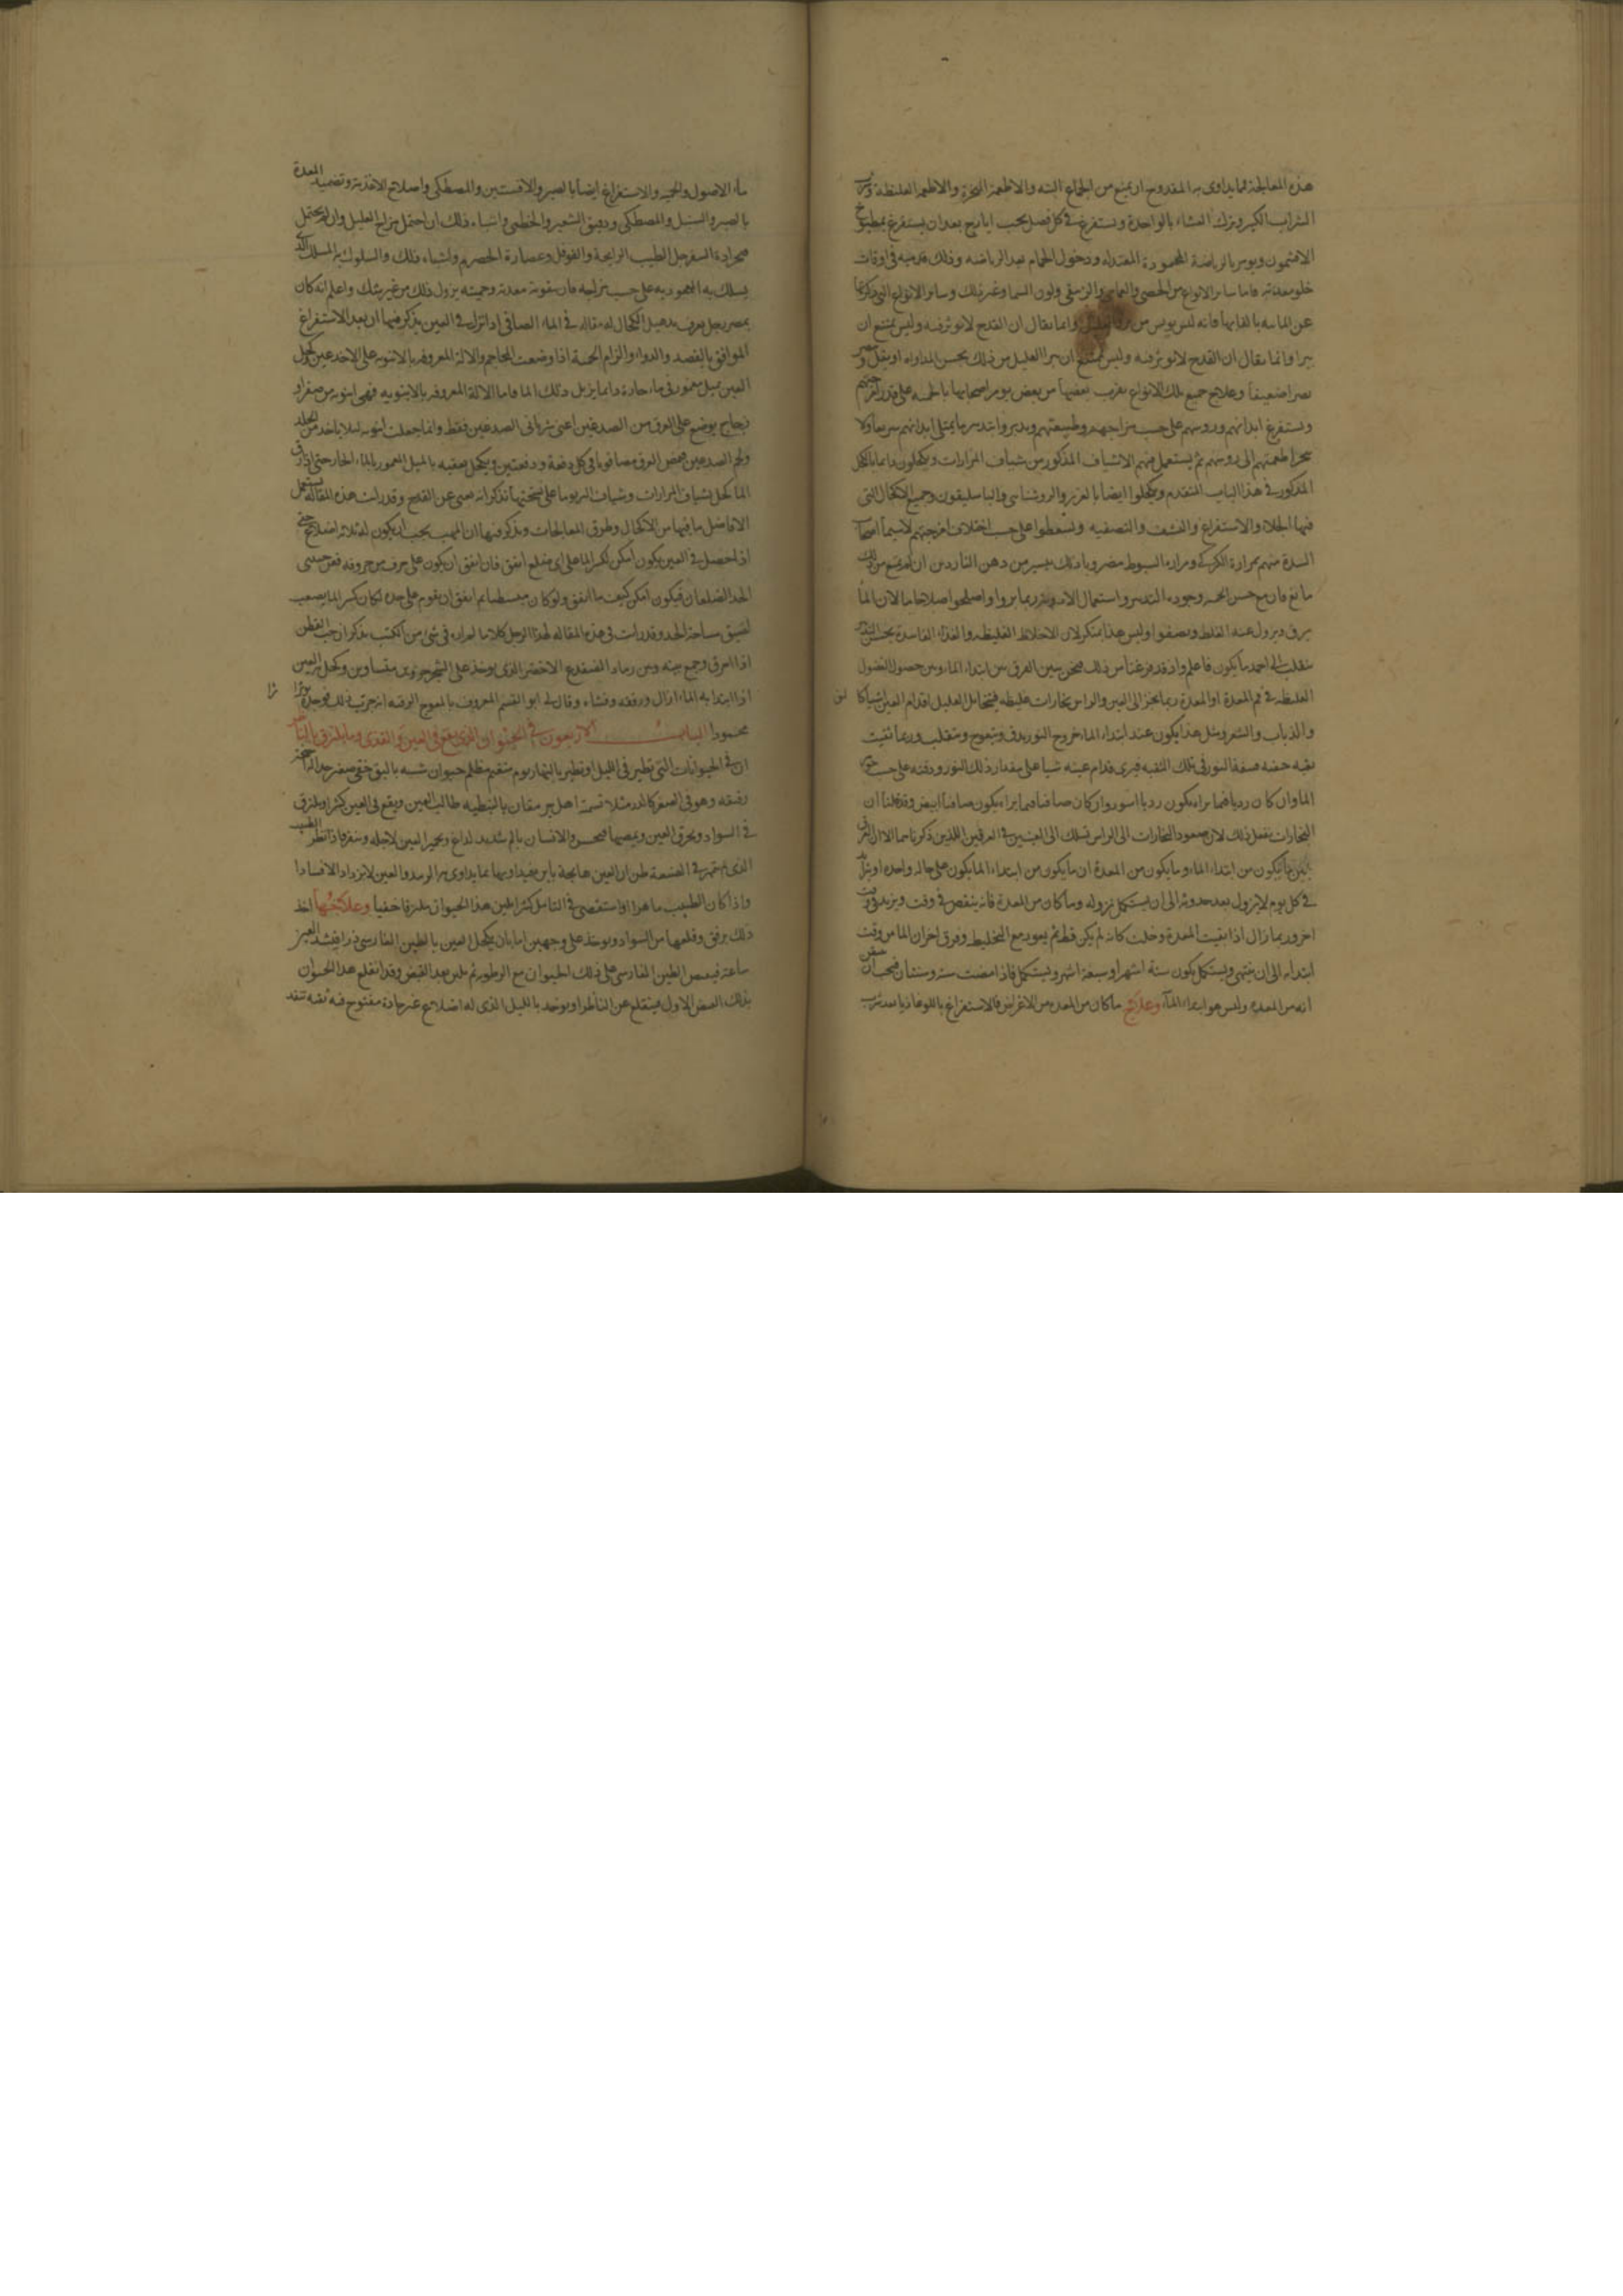 هذه المعالجة فما يداوى به المقدوح ان يمنع من الجماع البته والاطعمة المبخرة والاطعمه الغليظة وترك
الشراب الكثير وترك العشاء بالواحدة ويستفرغ في كل فصل بحب ايارج بعد ان يستفرغ بمطبوخ
الافتيمون ويومر بالرياضة المحمودة المعتدله ودخول الحمام بعد الرياضه وذلك في اوقات
خلو معدته فاما ساير الانواع من الجصي والزيبقي ولون السما وغير ذلك وساير الانواع التي ذكرناها
فانه ليس يويس من وانما يقال ان القدح لا يوثر فيه وليس يمتنع ان
يبرا وانما يقال ان القدح لا يوثر فيه وليس يمتنع ان يبرا العليل من ذلك بحسن المداواه او يقل
بصرا ضعيفا وعلاج جميع تلك الانواع يقرب بعضها من بعض يومر اصحابها بالحميه على قدر امزجتهم
ويستفرغ ابدانهم وروسهم على حسب مزاجهم وطبيعتهم ويدبروا بتدبير ما يمتلى ابدانهم سريعا ولا
اطعمتهم الى روسهم ثم يستعمل فيهم الاشياف المذكور من شياف المرارات ويكحلون دايما بالكحل
المذكور في هذا الباب المتقدم ويكحلوا ايضا بالعزيز والروشنايى والباسليقون وجميع الاكحال التي
فيها الجلاء والاستفراغ والنشف والتصفيه ويسعطوا على حسب اختلاف امزجتهم لا سيما اصحاب
السدة منهم بمرارة الكركي ومراره الشبوط مضروبا ذلك بيسير من دهن الناردين ان لم يمنع من ذلك
مانع فان مع حسن الحميه وجوده التدبير واستعمال الادويه ربما بروا واصلحوا صلاحا ما لان الماء
يرق ويزول عنه الغلظ ويصفوا وليس هذا بمنكر لان الاخلاط الغليظه والغذاء الفاسدة بحسن التدبير
ينقلب الى احمد ما يكون فاعلم واذ قد فرغنا من ذلك فنحن نبين الفرق بين ابتداء الماء وبين حصول الفضول
الغليظه في فم المعدة او المعدة ربما بخر الى العين والراس بخارات غليظه فيتخايل العليل قدام العين اشياء كالبق
والذباب والشعر ومثل هذا يكون عند ابتداء الماء خروج النور يدق ويتموج ويتقلب وربما نفيت
نقبه فيرى قدام عينه شيا على مقدار ذلك النور ودقته على حسب
الماء وان كان رديا فيما يراه يكون رديا اسود وان كان صافيا فيما يراه يكون صافيا ابيض وقد قلنا ان
البخارات تفعل ذلك لان صعود البخارات الى الراس تسلك الى العينين في العرقين اللذين ذكرناهما الا ان الفرق
بين ما يكون من ابتداء الماء وما يكون من المعدة ان ما يكون من ابتداء الماء يكون على حاله واحده او يزايد
في كل يوم لا يزول بعد حدوثه الى ان يستكمل نزوله وما كان من المعدة فانه ينقص في وقت ويزيد في وقت
اخر وربما زال اذا نقيت المعدة وخلت كانه لم يكن قط ثم يعود مع التخليط وفرق اخر ان الماء من وقت
ابتداءه الى ان ينتهي ويستكمل يكون ستة اشهر او سبعة اشهر ويستكمل فاذا مضت سنه وسنتان
انه من المعده وليس هو ابتداء الماء وعلاج ما كان من المعده من الاعراض فالاستفراغ باللوغاديا بعد شرب
ماء الاصول والحميه والاستفراغ ايضا بالصبر والافسنتين والمصطكى واصلاح الاغذية وتضميد المعدة
بالصبر والسنبل والمصطكى ودقيق الشعير والخطمى واشباه ذلك ان احتمل مزاج العليل وان لم يحتمل
فجرادة السفرجل الطيب الرايحة والفوفل وعصارة الحصرم واشباه ذلك والسلوك به المسلك الذي
يسلك به على حسب مزاجه فان بتقوية معدته وحميته يزول ذلك من غير شك واعلم انه كان
بمصر رجل يعرف الكحال له مقاله في الماء الصافي اذا نزل في العين يذكر فيها ان بعد الاستفراغ
الموافق بالفصد والدواء والزام الحميه اذا وضعت المحاجم والالة المعروفه بالانبوبه على الاخدعين وكحل
العين بميل مغمور في ماء حارة دايما يزيل ذلك الماء فاما الالة المعروفه بالانبوبه فهي انبوبه من صفر او
زجاج يوضع على العرق من الصدغين اعنى شرياني الصدغين فقط وانما جعلت انبوبه ليلا ياخذ من الجلد
ولحم الصدغين فيمص العرق مصا قويا في كل دفعة ودفعتين ويكحل بعقبه بالميل المغمور بالماء الحار حتى اذا رق
الماء كحل بشياف المرارات وشياف المريوما على نسختها يذكر انه يغنى عن القدح وقد رايت هذه المقاله يستعمل
الافاضل ما فيها من الاكحال وطرق المعالجات ويذكر فيها ان المهت يجب ان يكون له ثلاثه اضلاع حتى
اذا حصل في العين يكون امكن لكبس الماء على اى ضلع اتفق فان اتفق ان يكون على حرف من حروفه
الحد الضلعان فيكون امكن كيف ما اتفق ولو كان مبسطا ثم اتفق ان يقوم على حده لكان كبس الماء يصعب
لضيق مساحة الحد وقد رايت في هذه المقاله لهذا الرجل كلاما لم اره في شى من الكتب يذكر ان حب القطن
اذا احرق وجمع بينه وبين رماد الضفدع الاخضر الذى يوخذ على الشجر جزوين متساوين وكحل به العين
اذا ابتدا به الماء ازال ورققه وفشاه وقال لي ابو القسم المعروف بالمعوج الرقبه انه جرب ذلك فوجده موثرا
محمودا الباب الاربعون في الحيوان الذي يقع في العين والقذى وما يلتزق بالباطن
ان في الحيوانات التي تطير في الليل او تطير بالنهار يوم متغيم مظلم حيوان شبيه بالبق خفى صغير جدا له اجنحة
رقيقه وهو في الصغر كالذر مثلا تسمة اهل بر مقان بالنبطيه طالب العين ويقع في العين كثيرا ويلتزق
في السواد ويحرق العين ويمصها فيحس الانسان بالم شديد لداغ ويحمر العين لاجله وينفر فاذا نظر الطبيب
الذى لم يتمهر في الصنعة ظن ان العين هايجة بابن يفيداويها بما يداوى به الرمد والعين لا يزداد الا فسادا
واذا كان الطبيب ماهرا واستقصى في التامل كثيرا تبين هذا الحيوان ملتزقا خفيا وعلاجها اخذ
ذلك برفق وقلعها من السواد ويوخذ على وجهين اما بان يكحل العين بالطين الفارسي ذرا فيشد العين
ساعة فيمص الطين الفارسي على ذلك الحيوان مع الرطوبه ثم بعد القبض وقد انقلع هذا الحيوان
بذلك المص الاول فينقلع عن الناظر او يوخذ بالميل الذى له اضلاع غير حادة مفتوح فيه ثقبه تنفد